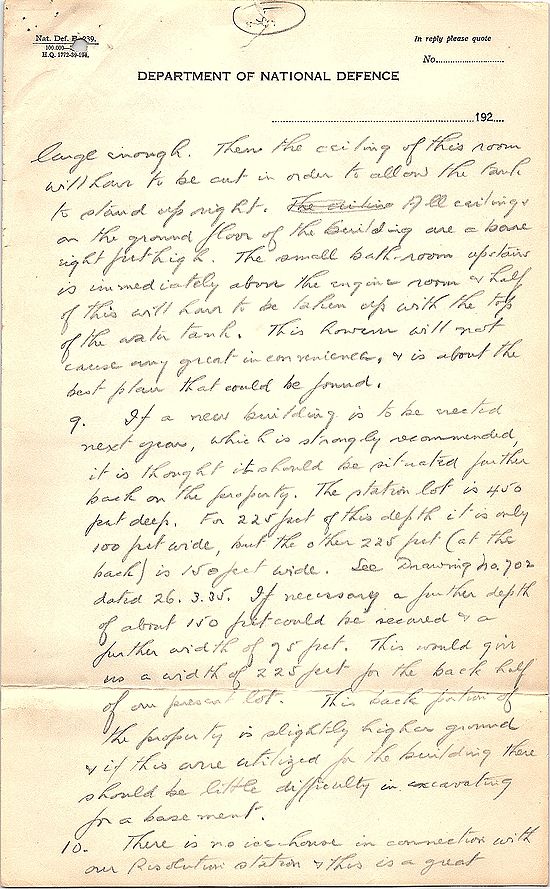 Nat. Def. E-239.
100,000
H.Q. 1772-39-194.
In reply please quote
No.
DEPARTMENT OF NATIONAL DEFENCE
192
large enough. Then the ceiling of this room
will have to be cut in order to allow the tank
to stand up right. The ceiling All ceilings
on the ground floor of the building are a bare
eight feet high. The small bath-room upstairs
is immediately above the engine room & half
of this will have to be taken up with the top
of the water tank. This however will not
cause any great inconvenience, & is about the
best plan that could be found.
9. If a new building is to be erected
next year, which is strongly recommended,
it is thought it should be situated further
back on the property. The station lot is 450
feet deep. For 225 feet of this depth it is only
100 feet wide, but the other 225 feet (at the
back) is 150 feet wide. See Drawing No. 702
dated 26.3.35. If necessary a further depth
of about 150 feet could be secured & a
further width of 75 feet. This would give
us a width of 225 feet for the back half
of our present lot. This back portion of
the property is slightly higher ground
& if this were utilized for the building there
should be little difficulty in excavating
for a basement.
10. There is no ice-house in connection with
our Resolution station & this is a great